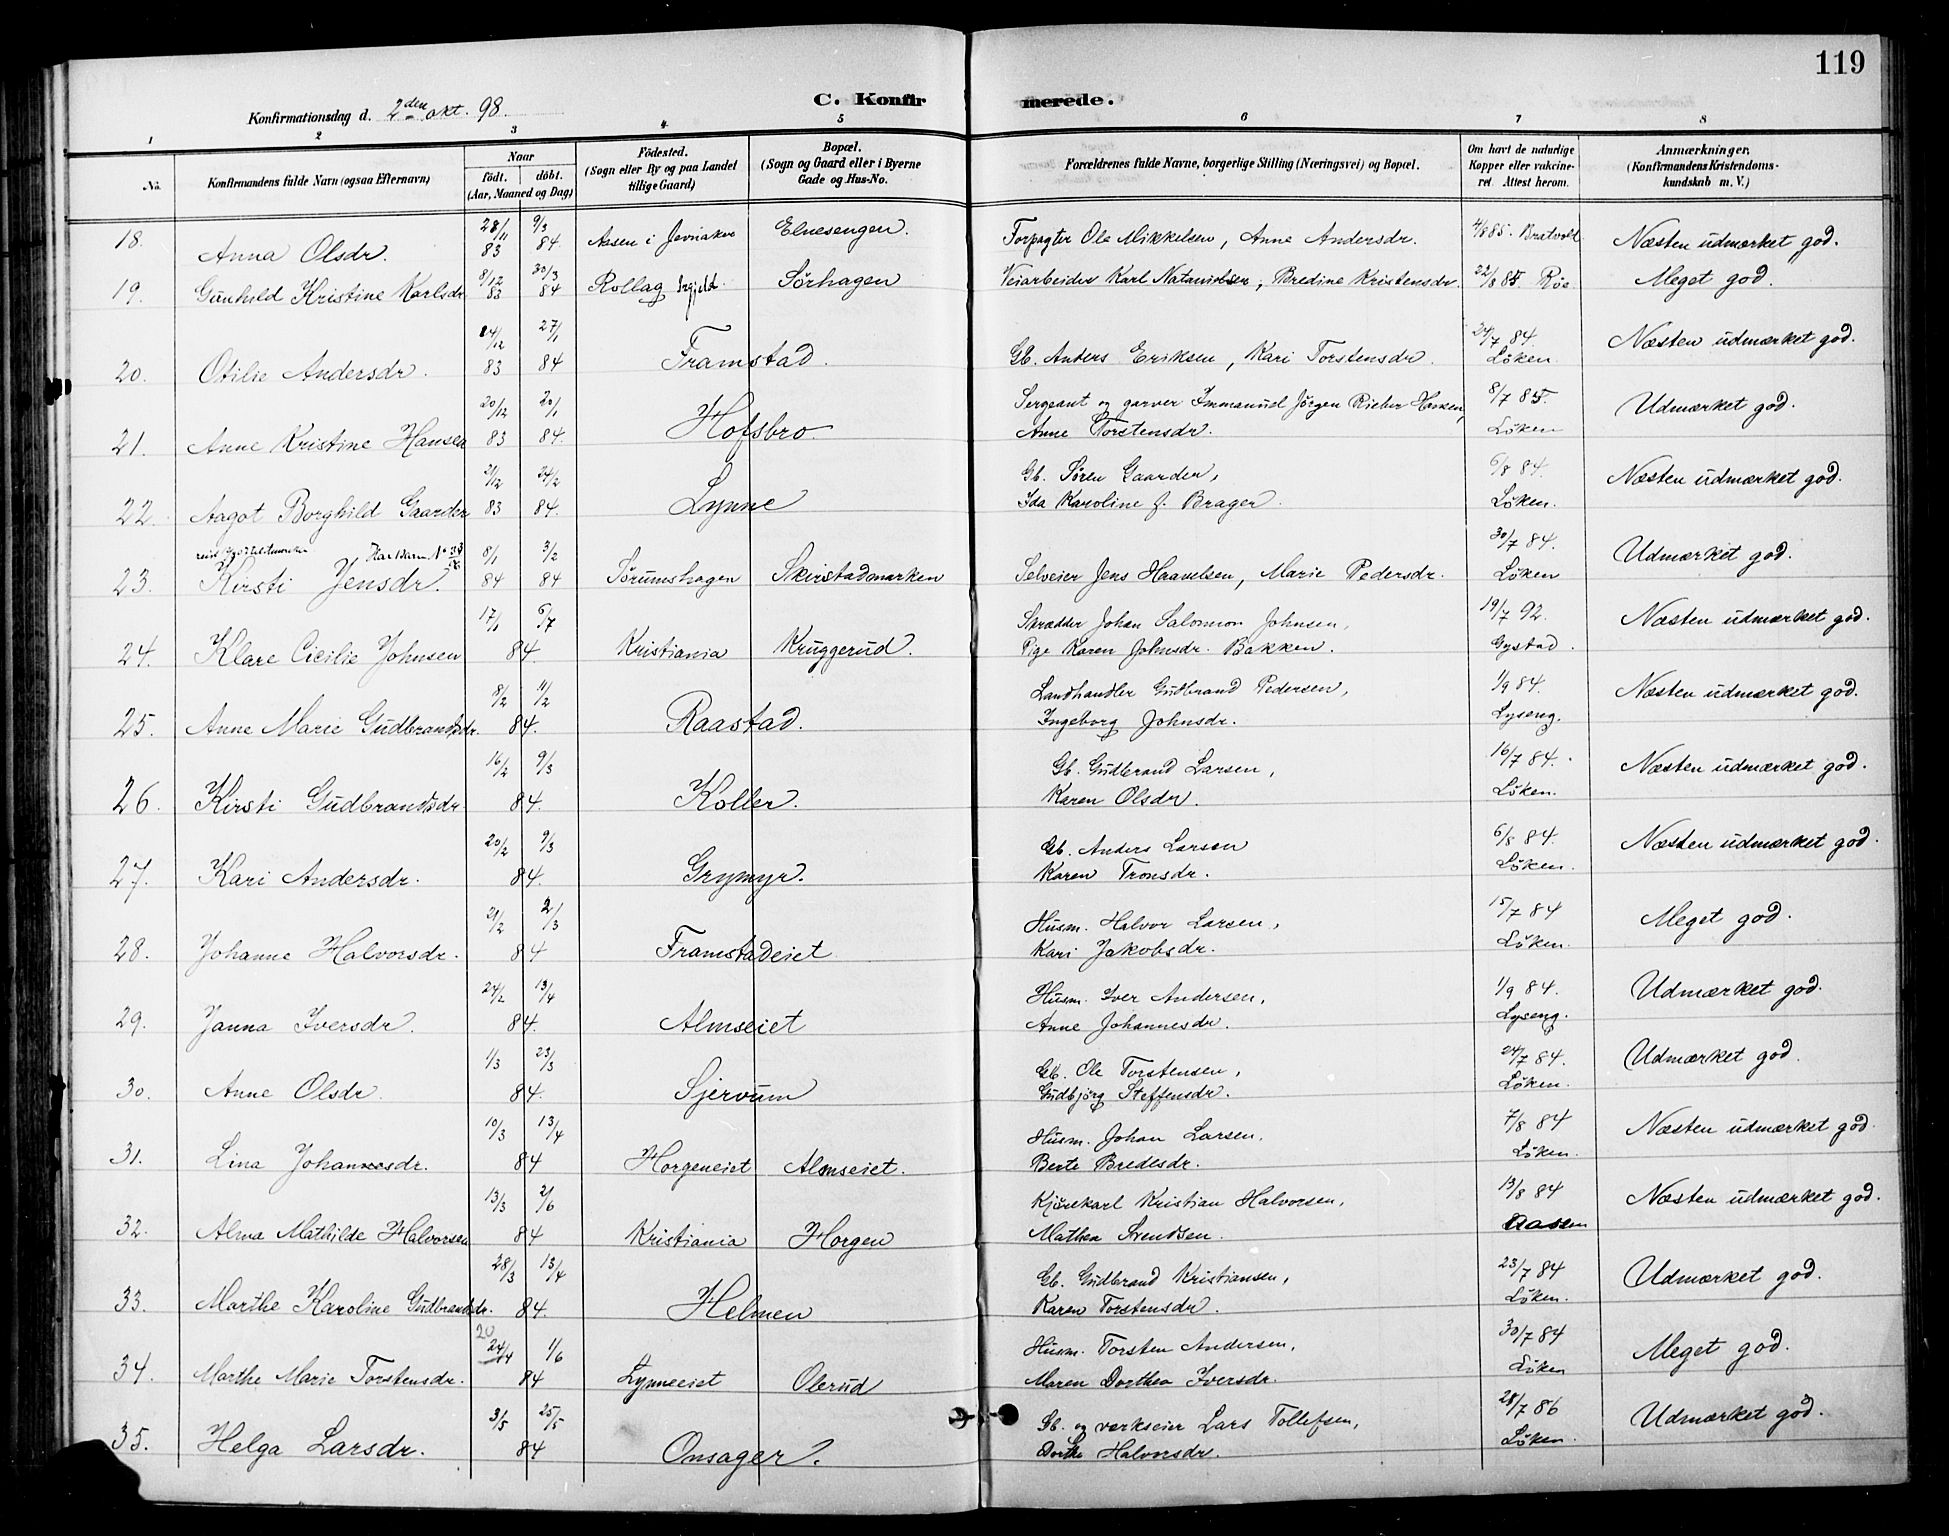 119
C. Konfirmerede.
Konfirmationsdag d. 2den okt. 98.
1 2 3 4 5 6 7 8
No. Konfirmandens fulde Navn (ogsaa Efternavn) Naar födt. döbt. (Aar, Maaned og Dag) Födested. (Sogn eller By og paa Landet tillige Gaard) Bopæl. (Sogn og Gaard eller i Byerne Gade og Hus-No. Forældrenes fulde Navne, borgerlige Stilling (Næringsvei) og Bopæl. Om havt de naturlige Kopper eller vakcineret. Attest herom. Anmærkninger, (Konfirmandens Kristendomskundskab m. V.)
18. Anna Olsdr. 28/11 83 9/3 84. Aasen i Jevnaker Elnesengen. Forpagter Ole Mikkelsen, Anne Andersdr. 4/8 85. Bratvold Næsten udmærket god.
19. Gunhild Kristine Karlsdr. 8/12 83 30/3 84 Rollag Sørhagen Veiarbeider Karl Natanielsen, Bredine Kristensdr. 22/8 85. Röe Meget god.
20. Otilie Andersdr. 24/12 83 27/1 84 Framstad. Gb. Anders Eriksen, Kari Torstensdr. 24/7 84. Löken. Næsten udmærket god.
21. Anne Kristine Hansen 20/12 83 20/1 84. Hofsbro. Sergeant og garver Immanuel Jörgen Rieber Hansen, Anne Torstensdr. 8/7 85. Löken Udmærket god.
22. Aagot Borghild Gaarder 21/12 83 24/2 84. Lynne Gb. Sören Gaarder, Ida Karoline f. Brager. 6/8 84. Löken. Næsten udmærket god.
Har Barn No 33
23. Kirsti Jensdr. 8/1 84 3/2 84 Sørumshagen Skirstadmarken Selveier Jens Haavelsen, Marie Pedersdr. 30/7 84. Löken Udmærket god.
24. Klare Cicilie Johnsen 17/1 6/7 84. Kristiania Kruggerud. Skrædder Johan Salomon Johnsen, Pige Karen Johnsdr. Bakken. 19/7 92. Gystad. Næsten udmærket god.
25. Anne Marie Gudbrandsdr. 8/2 11/2 84. Raastad. Landhandler Gudbrand Pedersen, Ingeborg Johnsdr. 1/9 84. Lyseng. Næsten udmærket god.
26. Kirsti Gudbrandsdr. 16/2 9/3 84. Koller. Gb. Gudbrand Larsen, Karen Olsdr. 16/7 84. Löken. Næsten udmærket god.
27. Kari Andersdr. 20/2 9/3 84. Grymyr. Gb. Anders Larsen Karen Tronsdr. 6/8 84. Löken. Næsten udmærket god.
28. Johanne Halvorsdr. 21/2 2/3 84 Framstadeiet Husm. Halvor Larsen, Kari Jakobsdr. 15/7 84 Löken. Meget god.
29. Janna Iversdr. 24/2 13/4 84. Almseiet Husm. Iver Andersen, Anne Johannesdr. 1/9 84. Lyseng. Udmærket god.
30. Anne Olsdr. 1/3 23/3 84. Sjervum Gb. Ole Torstensen, Gudbjörg Steffensdr. 24/7 84. Löken. Udmærket god.
31. Lina Johannesdr. 10/3 13/4 84 Horgeneiet Almseiet. Husm. Johan Larsen, Berte Bredesdr. 7/8 84 Löken. Næsten udmærket god.
32. Alma Mathilde Halvorsen 13/3 2/6 84 Kristiania Horgen Kjörekarl Kristian Halvorsen, Mathea Svendsen. 13/8 84 Næsten udmærket god.
33. Marthe Karoline Gudbrandsdr. 28/3 13/4 84. Helmen Gb. Gudbrand Kristiansen, Karen Torstensdr. 23/7 84 Löken. Udmærket god.
34. Marthe Marie Torstensdr. 20 24/4 1/6 84 Lynneeiet Olerud Husm. Torsten Andersen, Maren Dorthea Iversdr. 30/7 84 Löken Meget god.
35. Helga Larsdr. 3/5 25/5 84 Onsager. Gb. og værkseier Lars Tollefsen, Dorthe Halvorsdr. 28/7 86 Löken. Udmærket god.